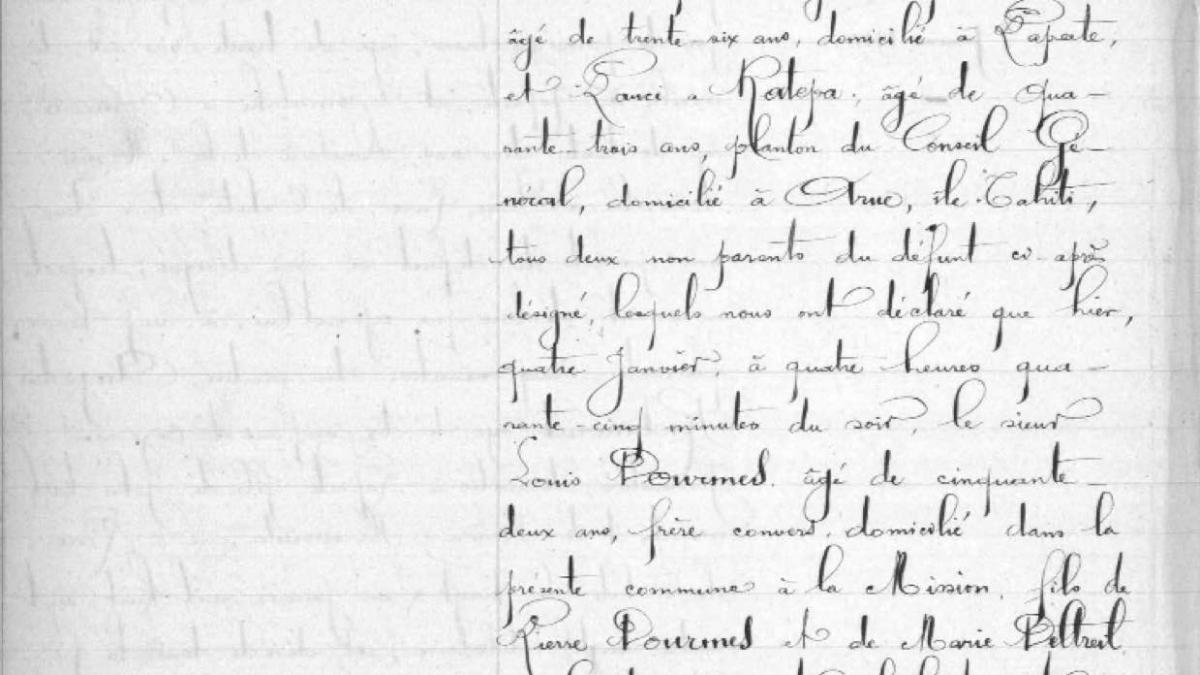 âgé de trente six ans, domicilié à Papeete,
et Pauci a Ratepa, âgé de qua-
rante trois ans, planton du Conseil Gé-
néral, domicilié à Arue, île Tahiti,
tous deux non parents du défunt ci-après
désigné, lesquels nous ont déclaré que hier,
quatre Janvier, à quatre heures qua-
rante-cinq minutes du soir, le sieur
Louis Pourmes, âgé de cinquante-
deux ans, frère convers, domicilié dans la
présente commune à la Mission, fils de
Pierre Pourmes et de Marie